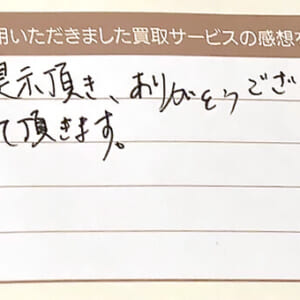 用いただきました買取サービスの感想を
提示頂き、ありがとうござ
て頂きます。